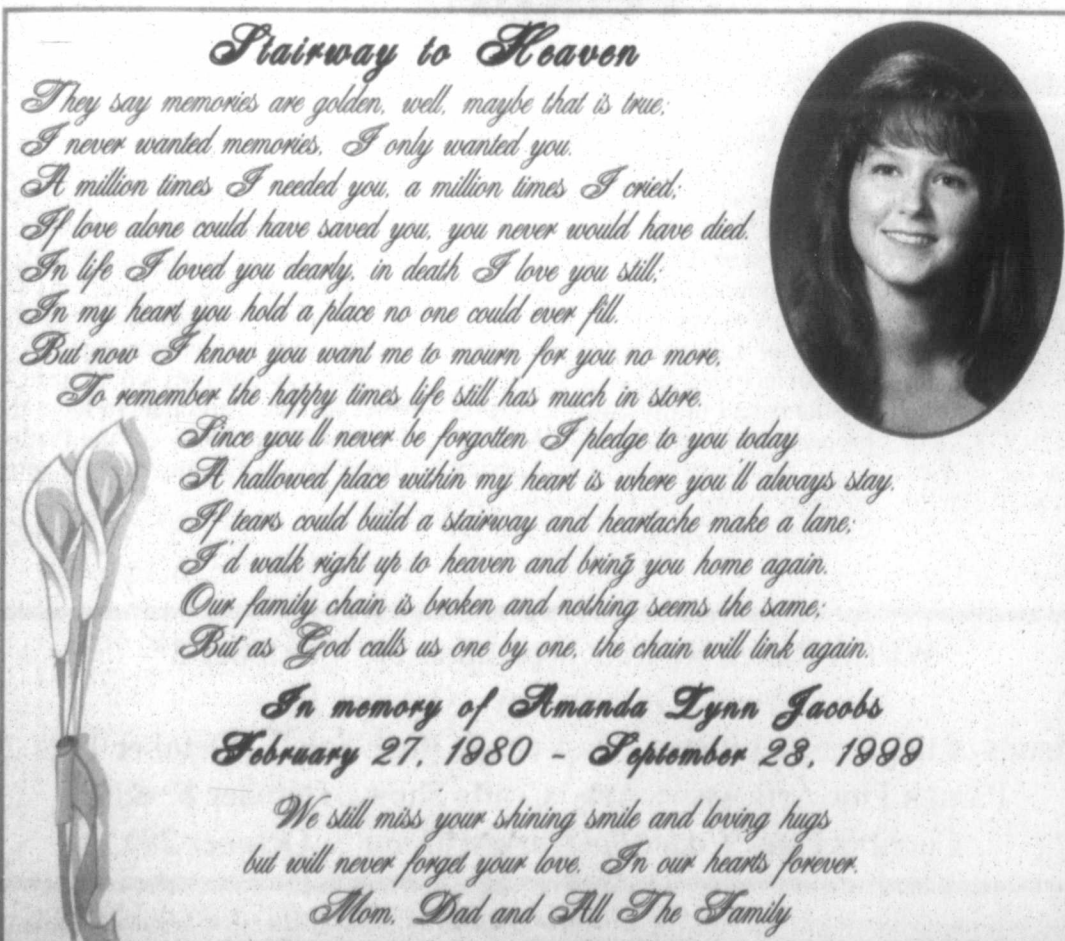 Stairway to Heaven
They say memories are golden, well, maybe that is true;
I never wanted memories, I only wanted you.
A million times I needed you, a million times I cried;
If love alone could have saved you, you never would have died.
In life I loved you dearly, in death I love you still;
In my heart you hold a place no one could ever fill.
But now I know you want me to mourn for you no more;
To remember the happy times life still has much in store.
Since you'll never be forgotten I pledge to you today
A hallowed place within my heart is where you'll always stay.
If tears could build a stairway and heartache make a lane;
I'd walk right up to heaven and bring you home again.
Our family chain is broken and nothing seems the same;
But as God calls us one by one, the chain will link again.
In memory of Amanda Lynn Jacobs
February 27, 1980 - September 23, 1999
We still miss your shining smile and loving hugs
but will never forget your love. In our hearts forever.
Mom, Dad and All The Family